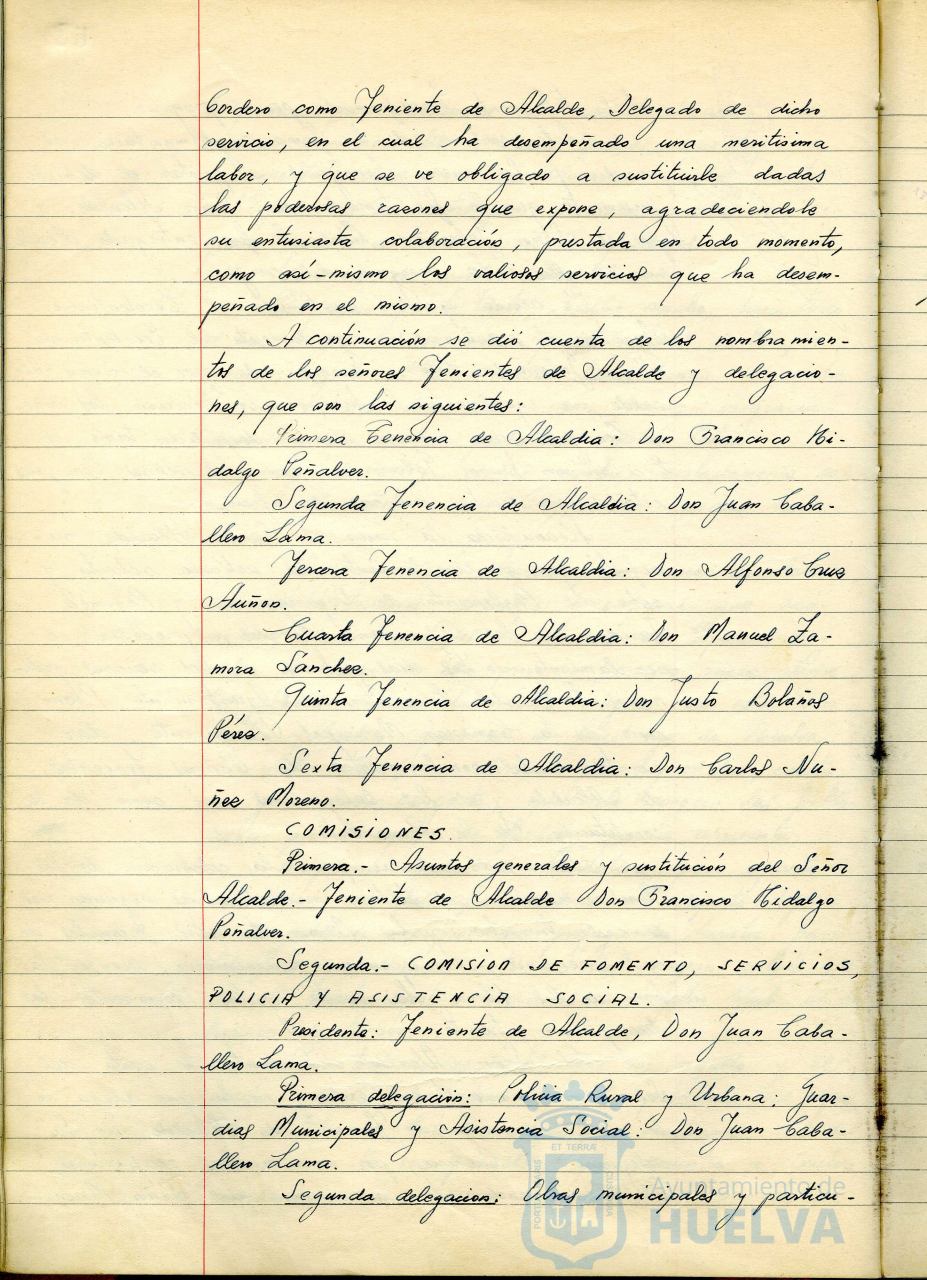 Cordero como Teniente de Alcalde, Delegado de dicho
servicio, en el cual ha desempeñado una meritisima
labor, y que se ve obligado a sustituirle dadas
las poderosas razones que expone, agradeciendole
su entusiasta colaboración, prestada en todo momento,
como así-mismo los valiosos servicios que ha desem-
peñado en el mismo.
A continuación se dió cuenta de los nombramien-
tos de los señores Tenientes de Alcalde y delegacio-
nes, que son las siguientes:
Primera Tenencia de Alcaldia: Don Francisco Hi-
dalgo Peñalver.
Segunda Tenencia de Alcaldia: Don Juan Caba-
llero Lama.
Tercera Tenencia de Alcaldia: Don Alfonso Cruz
Auñon.
Cuarta Tenencia de Alcaldia: Don Manuel Za-
mora Sánchez.
Quinta Tenencia de Alcaldia: Don Justo Bolaños
Pérez.
Sexta Tenencia de Alcaldia: Don Carlos Nu-
ñez Moreno.
COMISIONES.
Primera.- Asuntos generales y sustitución del Señor
Alcalde.- Teniente de Alcalde Don Francisco Hidalgo
Peñalver.
Segunda.- COMISION DE FOMENTO, SERVICIOS,
POLICIA Y ASISTENCIA SOCIAL.
Presidente: Teniente de Alcalde, Don Juan Caba-
llero Lama.
Primera delegación: Policia Rural y Urbana; Guar-
dias Municipales y Asistencia Social: Don Juan Caba-
llero Lama.
Segunda delegacion: Obras municipales y particu-
ET TERRÆ
Ayuntamiento de
HUELVA